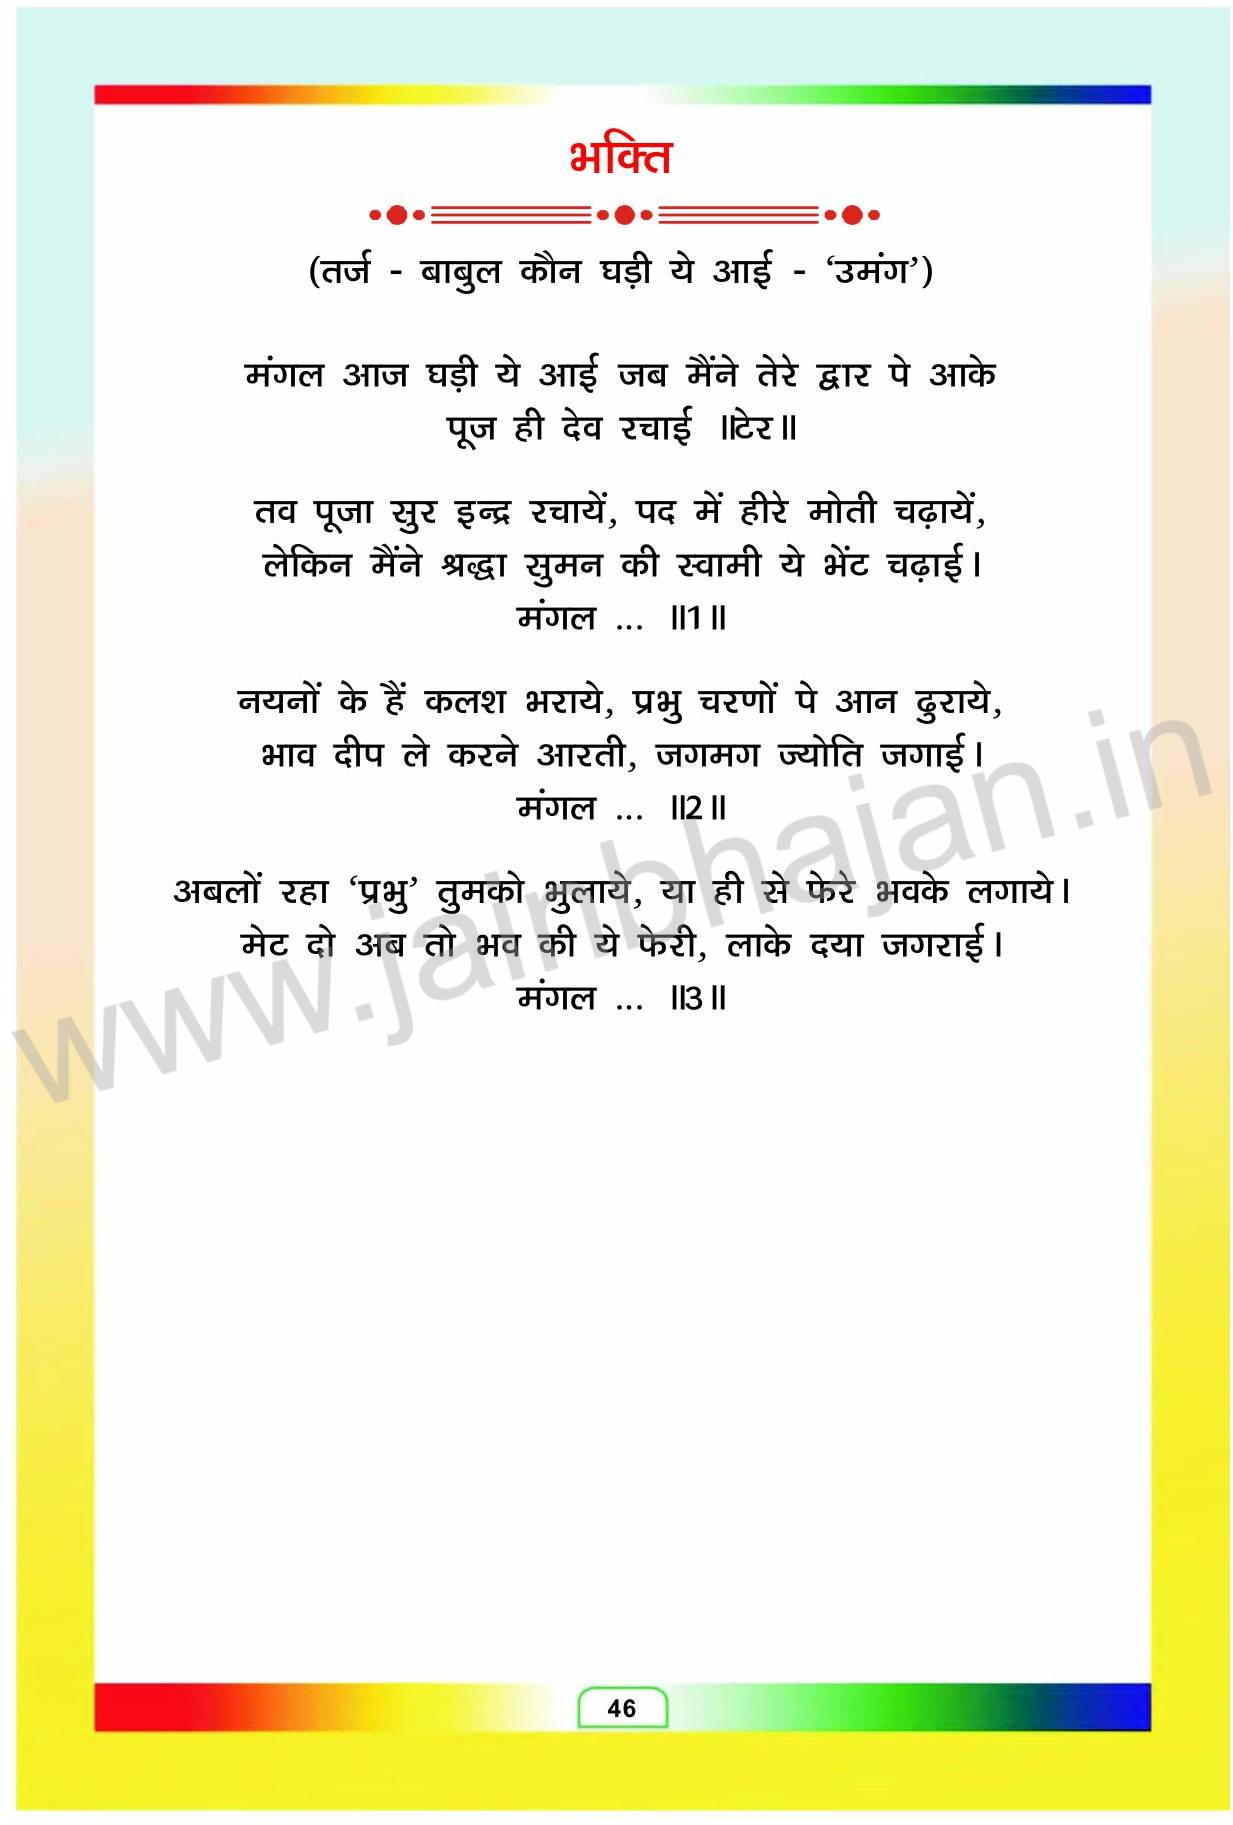 भक्ति
(तर्ज - बाबुल कौन घड़ी ये आई - ‘उमंग’)
मंगल आज घड़ी ये आई जब मैंने तेरे द्वार पे आके
पूज ही देव रचाई ॥टेर॥
तव पूजा सुर इन्द्र रचायें, पद में हीरे मोती चढ़ायें,
लेकिन मैंने श्रद्धा सुमन की स्वामी ये भेंट चढ़ाई।
मंगल ... ॥1॥
नयनों के हैं कलश भराये, प्रभु चरणों पे आन ढुराये,
भाव दीप ले करने आरती, जगमग ज्योति जगाई।
मंगल ... ॥2॥
अबलों रहा ‘प्रभु’ तुमको भुलाये, या ही से फेरे भवके लगाये।
मेट दो अब तो भव की ये फेरी, लाके दया जगराई।
मंगल ... ॥3॥
www.jainbhajan.in
46